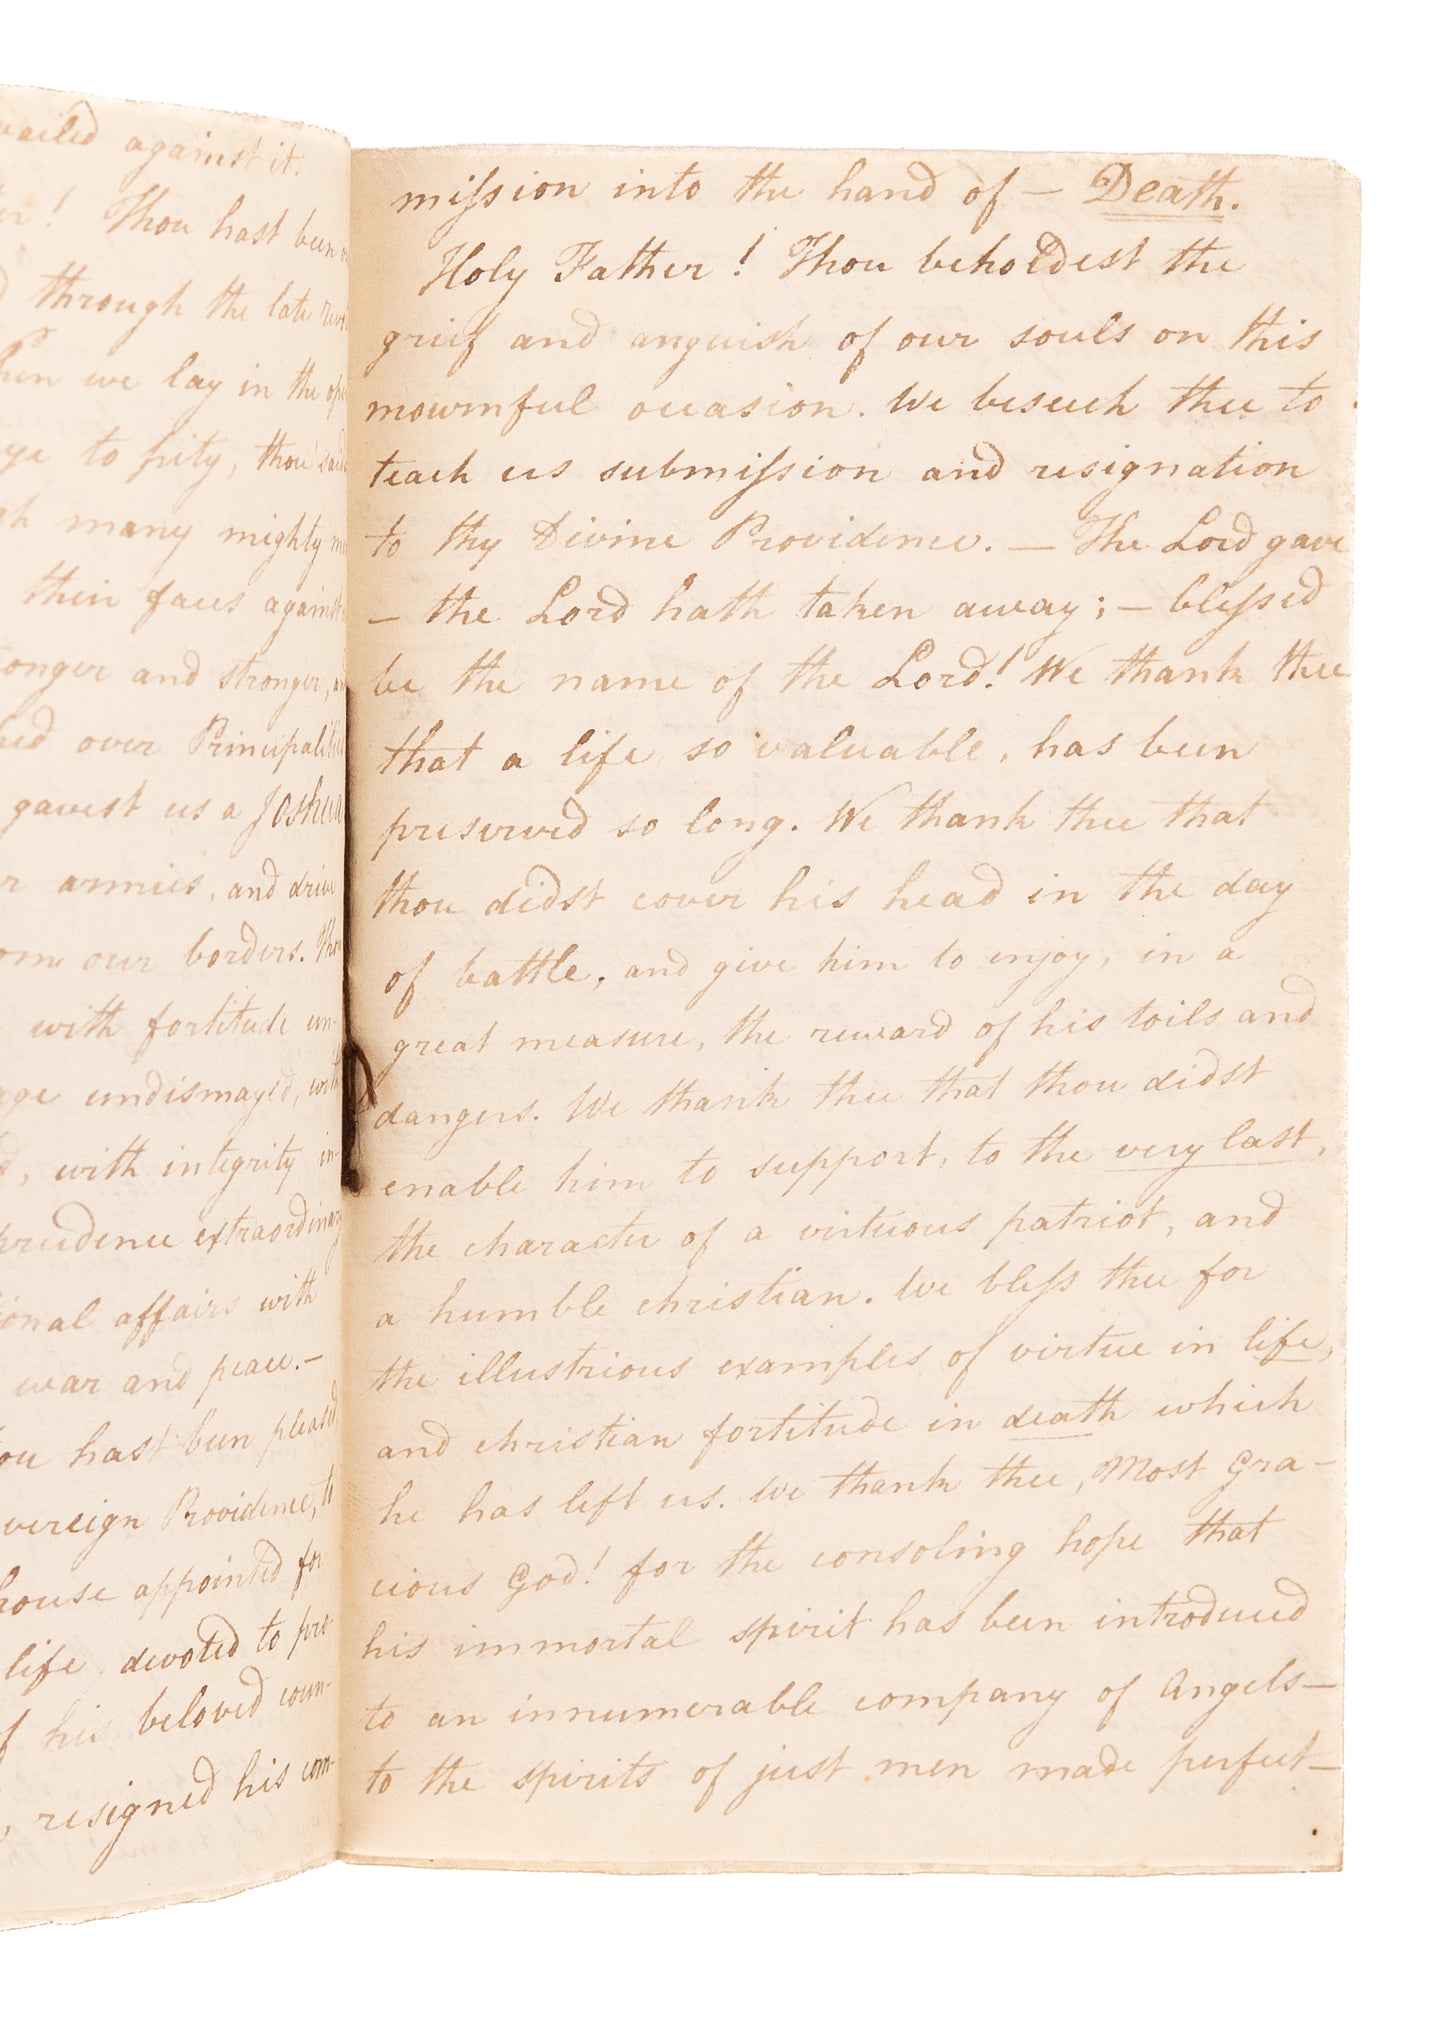 vailed against it.
! Thou hast been
through the late
we lay in the
eye to pity, thou said
many mighty
their faces against
onger and stronger,
over Principalitie
gavest us a Joshua
armies, and drive
om our borders. Thou
with fortitude un-
age undismayed, with
, with integrity in-
prudence extraordinary
ional affairs with
war and peace.—
ou hast been pleased
overeign Providence, to
house appointed for
life devoted to pro-
f his beloved coun-
, resigned his com-
miſsion into the hand of — Death.
Holy Father! Thou beholdest the
grief and anguish of our souls on this
mournful occasion. We beseech thee to
teach us submiſsion and resignation
to thy Divine Providence. — The Lord gave
— the Lord hath taken away; — bleſsed
be the name of the Lord! We thank thee
that a life so valuable, has been
preserved so long. We thank thee that
thou didst cover his head in the day
of battle, and give him to enjoy, in a
great measure, the reward of his toils and
dangers. We thank thee that thou didst
enable him to support, to the very last,
the character of a virtuous patriot, and
a humble christian. We bleſs thee for
the illustrious examples of virtue in life,
and christian fortitude in death which
he has left us. We thank thee, Most Gra-
cious God! for the consoling hope that
his immortal spirit has been introduced
to an innumerable company of Angels—
to the spirits of just men made perfect—